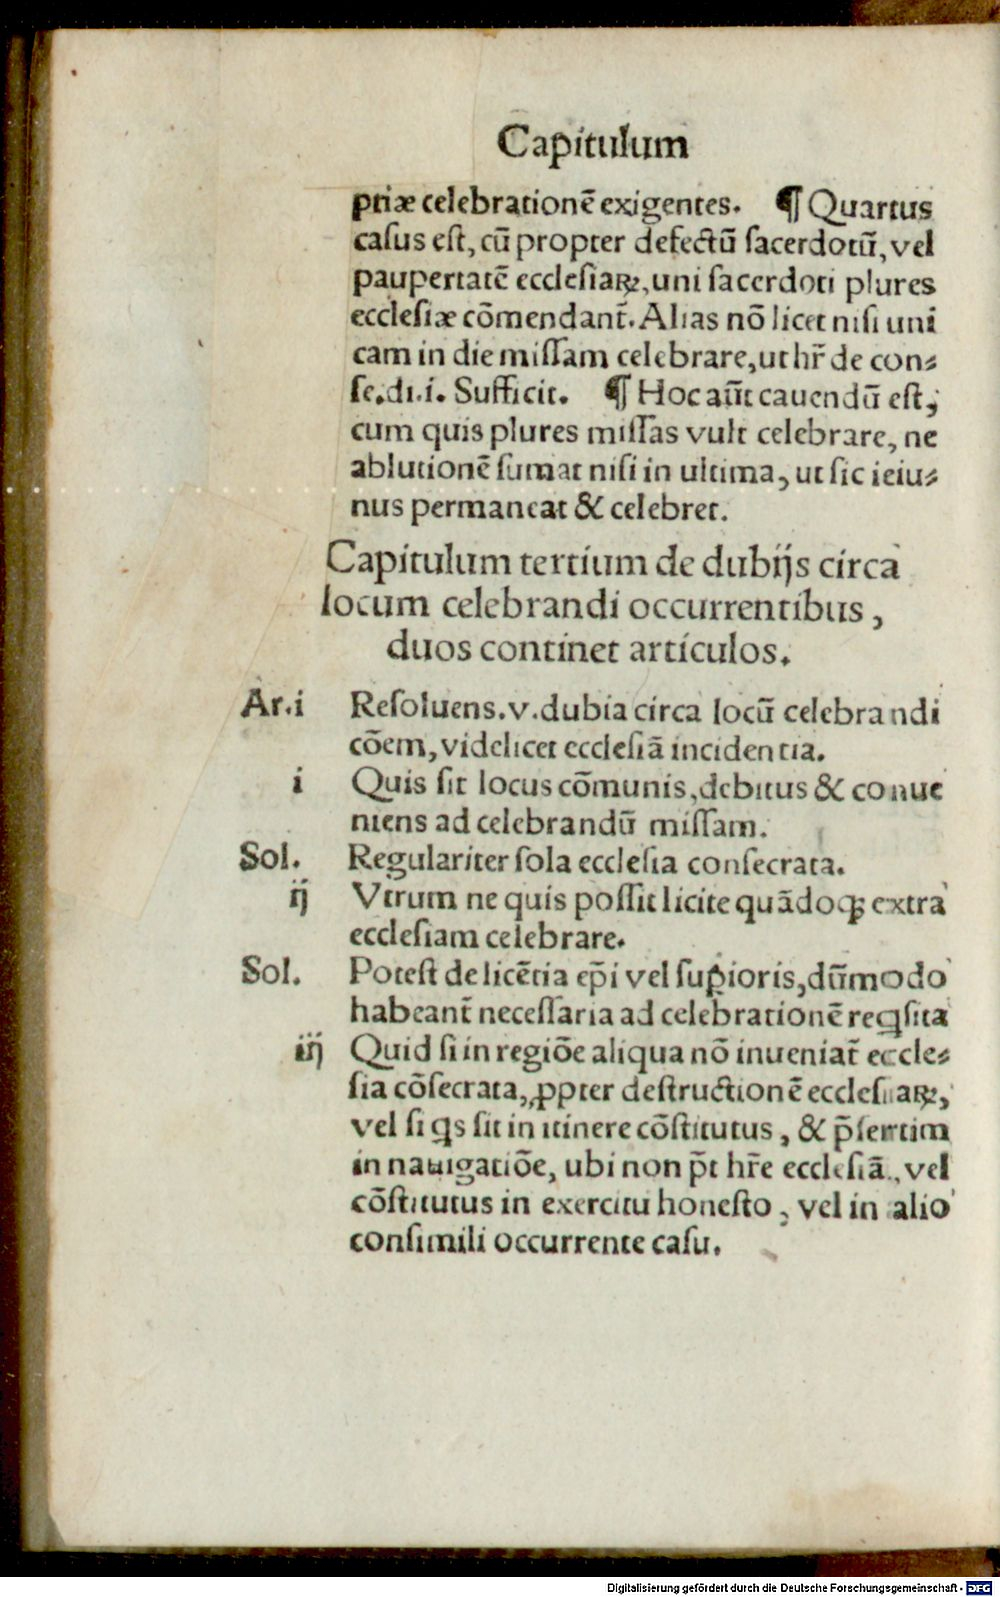 Capitulum
ptiæ celebrationē exigentes. ¶ Quartus
casus est, cū propter defectū sacerdotū, vel
paupertatē ecclesiaꝝ, uni sacerdoti plures
ecclesiæ cōmendant̄. Alias nō licet nisi uni
cam in die missam celebrare, ut hr̄ de con⸗
se. di. i. Sufficit. ¶ Hoc aūt cauendū est,
cum quis plures missas vult celebrare, ne
ablutionē sumat nisi in ultima, ut sic ieiu⸗
nus permaneat & celebret.
Capitulum tertium de dubijs circa
locum celebrandi occurrentibus,
duos continet articulos.
Ar. i Resoluens. v. dubia circa locū celebrandi
cōem, videlicet ecclesiā incidentia.
i Quis sit locus cōmunis, debitus & conue
niens ad celebrandū missam.
Sol. Regulariter sola ecclesia consecrata.
ij Vtrum ne quis possit licite quādoqꝫ extra
ecclesiam celebrare.
Sol. Potest de licētia ep̄i vel suꝑioris, dūmodo
habeant̄ necessaria ad celebrationē reqͥsita
iij Quid si in regiōe aliqua nō inueniat̄ eccle⸗
sia cōsecrata, ꝓpter destructionē ecclesiaꝝ,
vel si qͥs sit in itinere cōstitutus, & p̄sertim
in nauigatiōe, ubi non p̄t hr̄e ecclesiā, vel
cōstitutus in exercitu honesto, vel in alio
consimili occurrente casu.
Digitalisierung gefördert durch die Deutsche Forschungsgemeinschaft - DFG